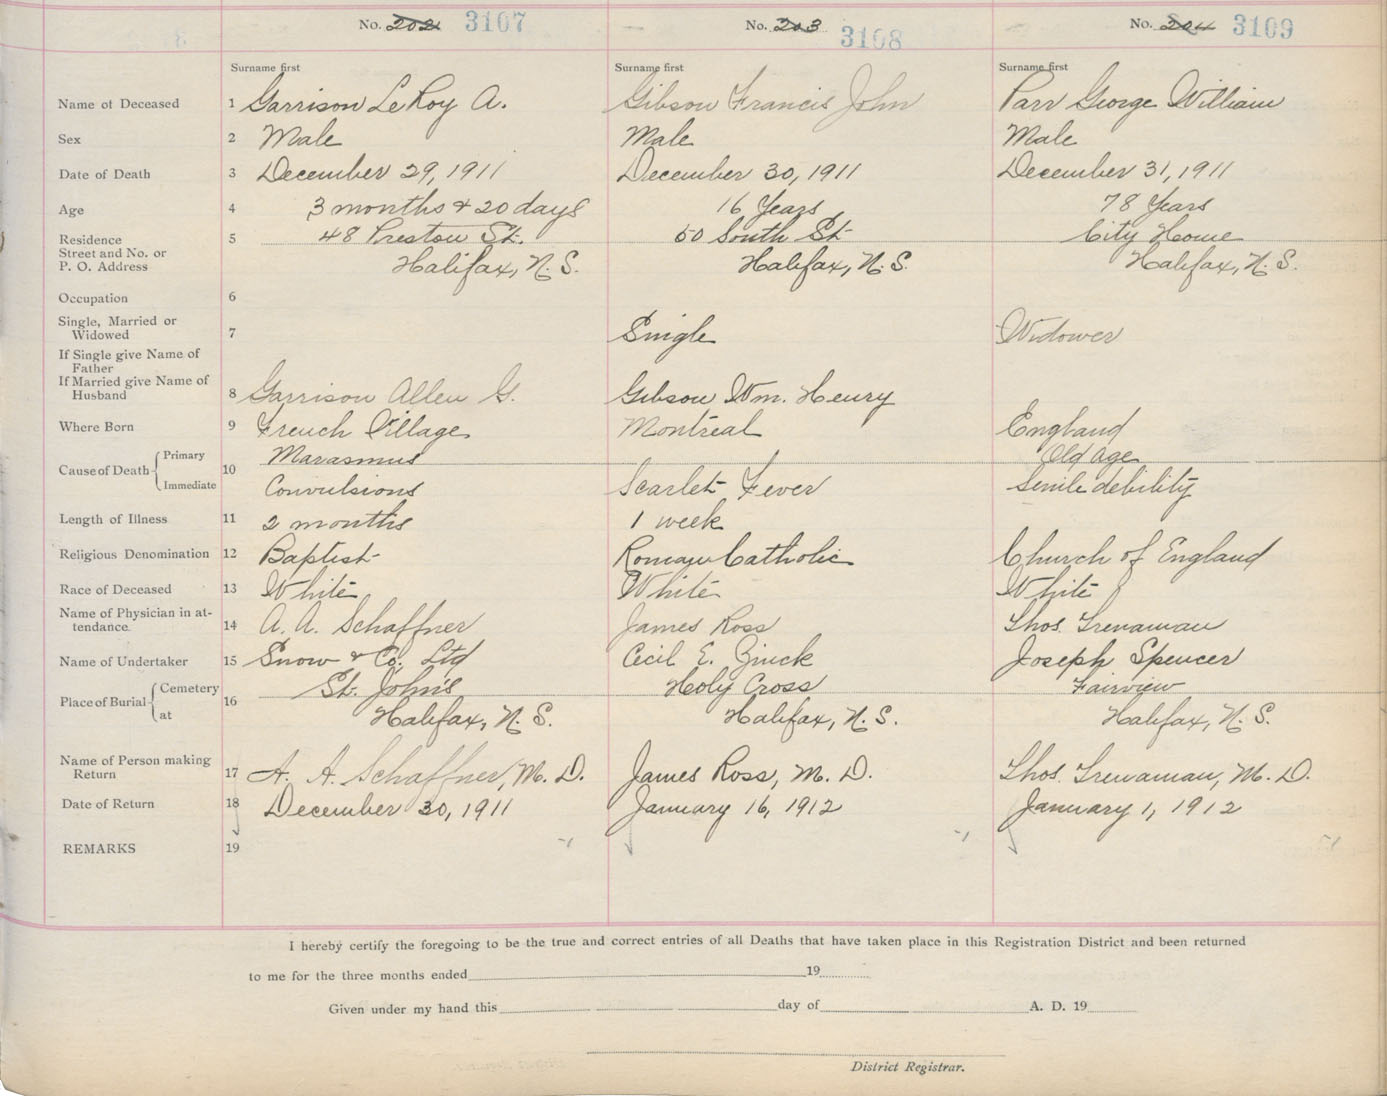 No. 202 3107 No. 203 3108 No. 204 3109
Surname first Surname first Surname first
Name of Deceased 1 Garrison LeRoy A. Gibson Francis John Parr George William
Sex 2 Male Male Male
Date of Death 3 December 29, 1911 December 30, 1911 December 31, 1911
Age 4 3 months & 20 days 16 Years 78 Years
Residence 5 48 Preston St. 50 South St City Home
Street and No. or
P. O. Address Halifax, N. S. Halifax, N. S. Halifax, N. S.
Occupation 6
Single, Married or
Widowed 7 Single Widower
If Single give Name of
Father
If Married give Name of
Husband 8 Garrison Allen G. Gibson Wm. Henry
Where Born 9 French Village Montreal England
Cause of Death Primary 10 Marasmus Old age
Immediate Convulsions Scarlet Fever Senile debility
Length of Illness 11 2 months 1 week
Religious Denomination 12 Baptist Roman Catholic Church of England
Race of Deceased 13 White White White
Name of Physician in at-
tendance. 14 A. A. Schaffner James Ross Thos. Trenaman
Name of Undertaker 15 Snow & Co, Ltd Cecil E. Zinck Joseph Spencer
Place of Burial Cemetery 16 St. John's Holy Cross Fairview
at Halifax, N. S. Halifax, N. S. Halifax, N. S.
Name of Person making
Return 17 A. A. Schaffner, M. D. James Ross, M. D. Thos. Trenaman, M. D.
Date of Return 18 December 30, 1911 January 16, 1912 January 1, 1912
REMARKS 19
I hereby certify the foregoing to be the true and correct entries of all Deaths that have taken place in this Registration District and been returned
to me for the three months ended 19
Given under my hand this day of A. D. 19
District Registrar.